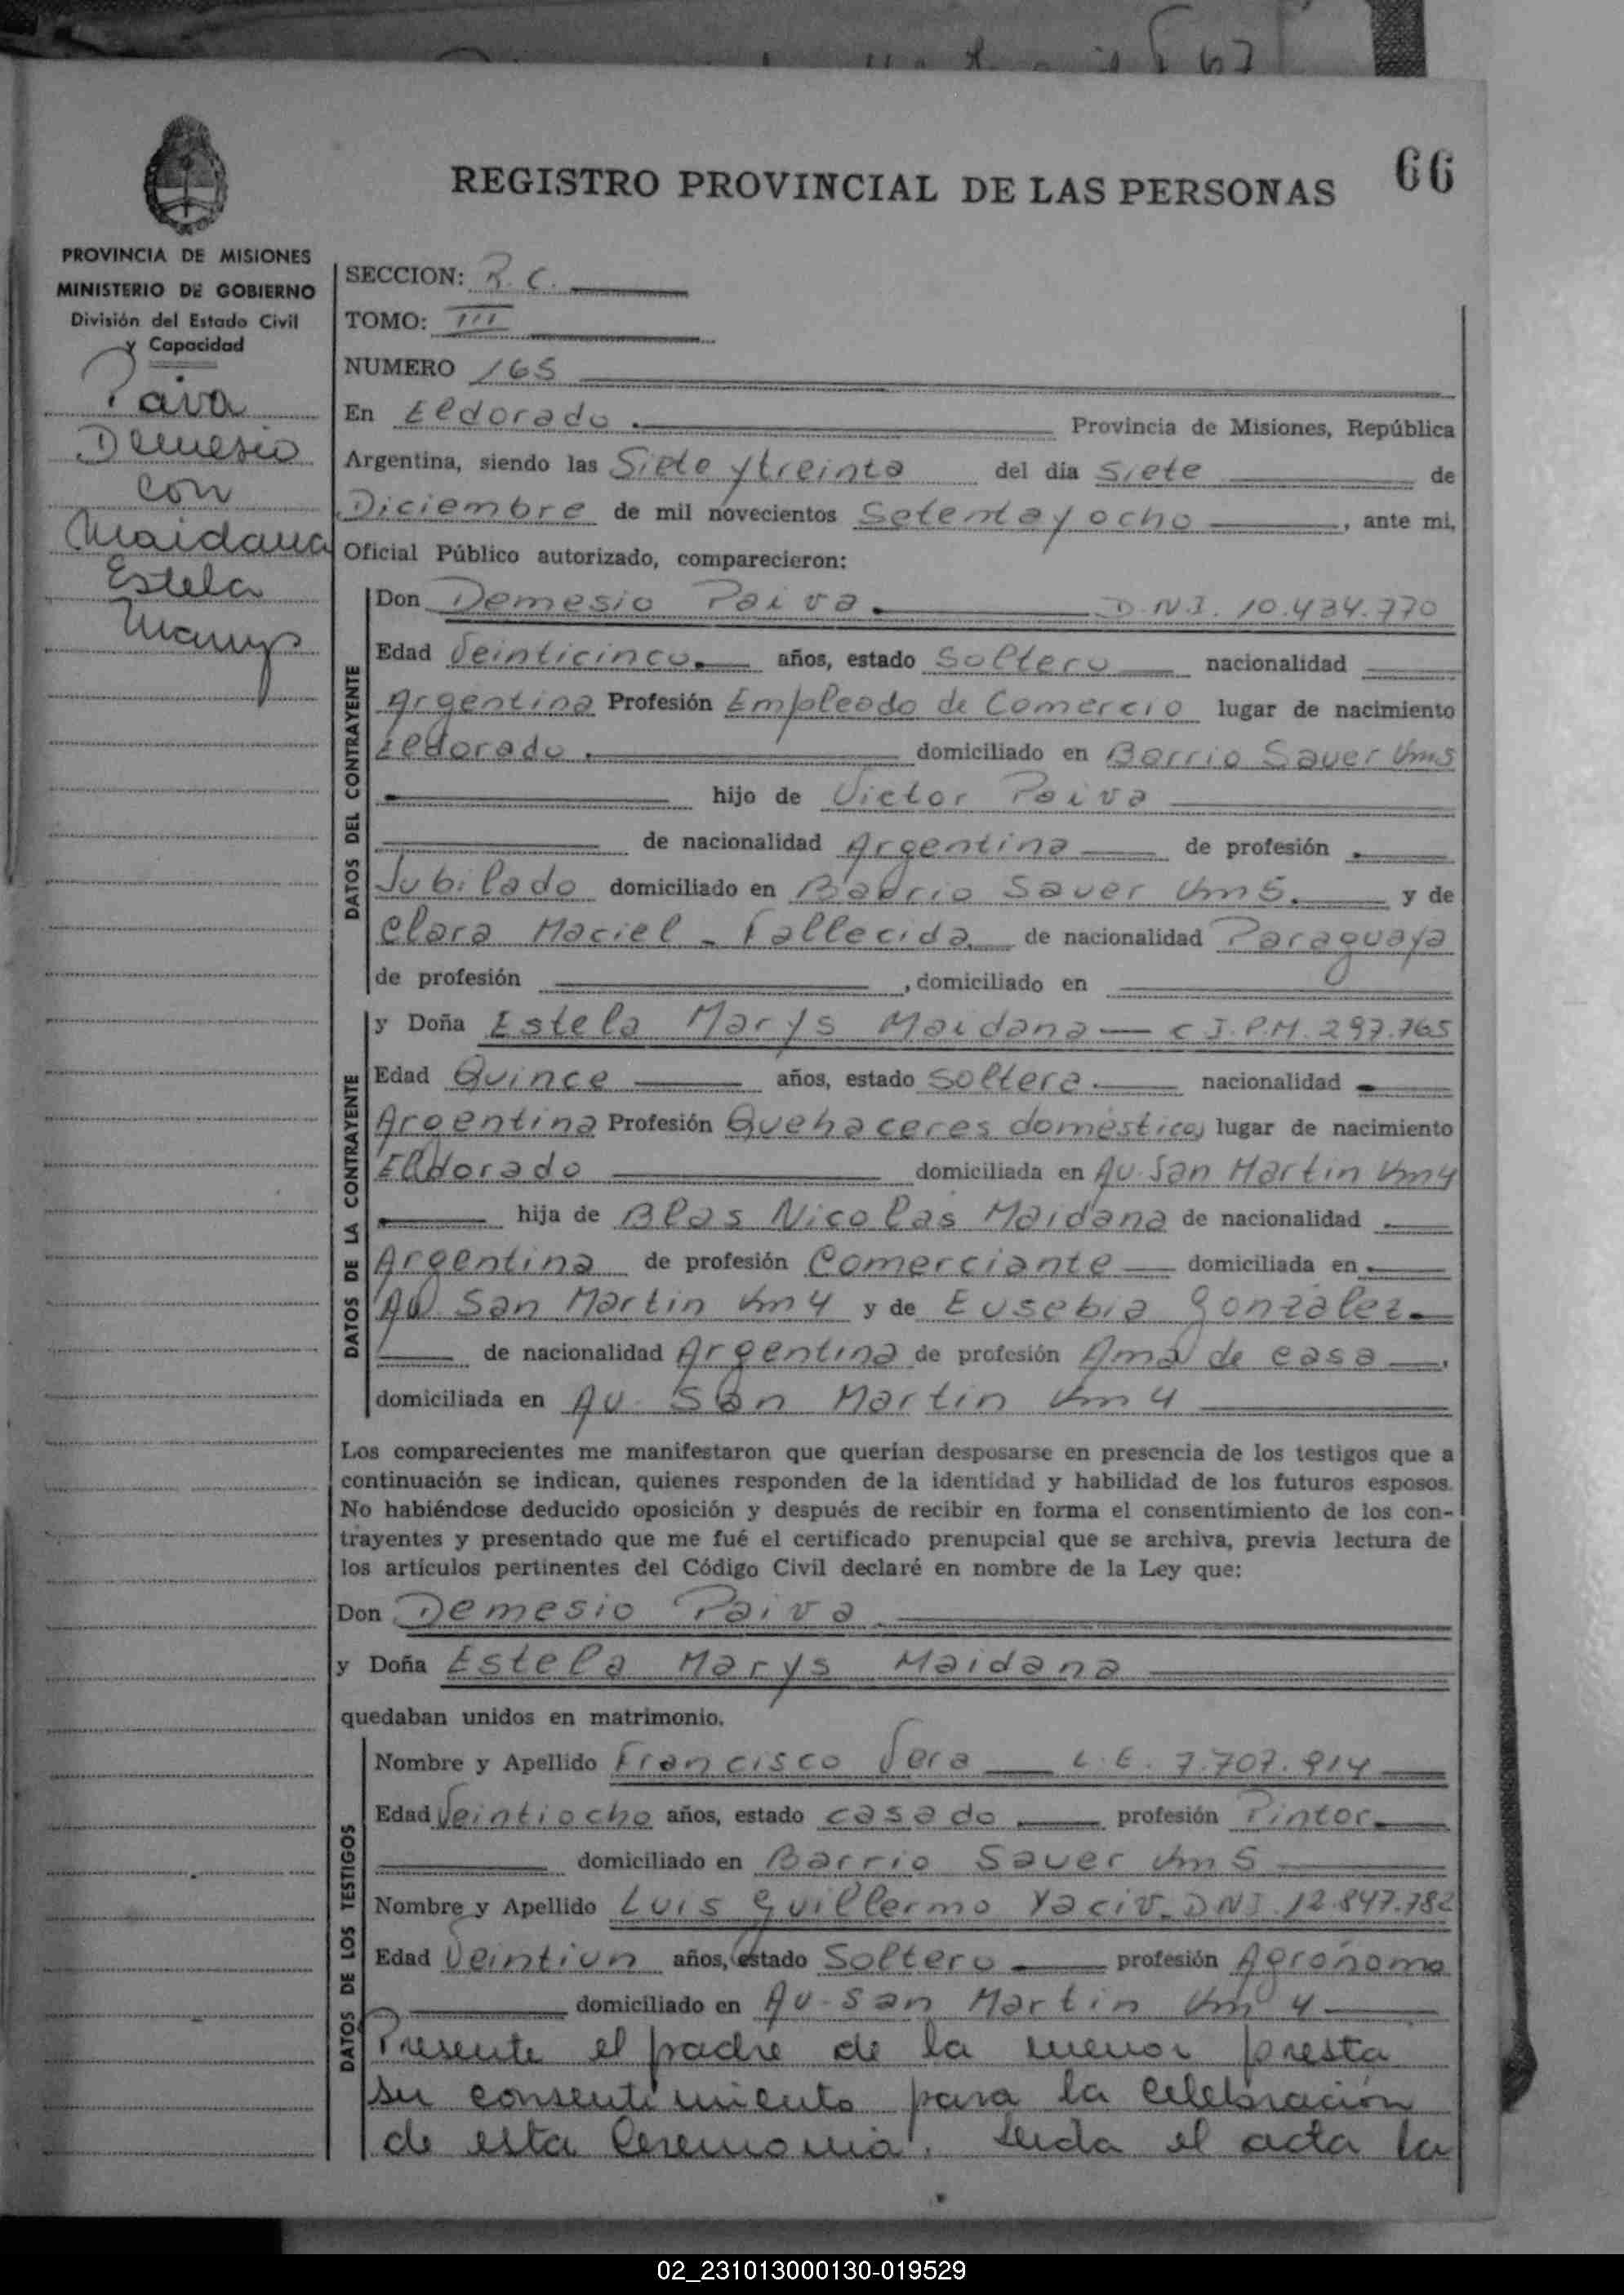 66
REGISTRO PROVINCIAL DE LAS PERSONAS
PROVINCIA DE MISIONES
MINISTERIO DE GOBIERNO
División del Estado Civil
y Capacidad
Paiva
Demesio
con
Maidana
Estela
Marys
SECCION: R. C.
TOMO: III
NUMERO 165
En Eldorado. Provincia de Misiones, República
Argentina, siendo las Siete y treinta del día Siete de
Diciembre de mil novecientos Setenta y ocho, ante mi,
Oficial Público autorizado, comparecieron:
DATOS DEL CONTRAYENTE
Don Demesio Paiva. D.N.I. 10.434.770
Edad Veinticinco. años, estado Soltero nacionalidad
Argentina Profesión Empleado de Comercio lugar de nacimiento
Eldorado. domiciliado en Barrio Sauer Km5
hijo de Victor Paiva
de nacionalidad Argentina de profesión
Jubilado domiciliado en Barrio Sauer Km 5. y de
Clara Maciel - Fallecida de nacionalidad Paraguaya
de profesión , domiciliado en
DATOS DE LA CONTRAYENTE
y Doña Estela Marys Maidana — C.I.P.M. 297.765
Edad Quince años, estado Soltera. nacionalidad
Argentina Profesión Quehaceres domésticos lugar de nacimiento
Eldorado domiciliada en Av. San Martin Km4
hija de Blas Nicolas Maidana de nacionalidad
Argentina de profesión Comerciante domiciliada en
Av. San Martin Km 4 y de Eusebia Gonzalez.
de nacionalidad Argentina de profesión Ama de casa.
domiciliada en Av. San Martin Km 4
Los comparecientes me manifestaron que querían desposarse en presencia de los testigos que a
continuación se indican, quienes responden de la identidad y habilidad de los futuros esposos.
No habiéndose deducido oposición y después de recibir en forma el consentimiento de los con-
trayentes y presentado que me fué el certificado prenupcial que se archiva, previa lectura de
los artículos pertinentes del Código Civil declaré en nombre de la Ley que:
Don Demesio Paiva
y Doña Estela Marys Maidana
quedaban unidos en matrimonio.
DATOS DE LOS TESTIGOS
Nombre y Apellido Francisco Vera — L.E. 7.707.914
Edad Veintiocho años, estado casado profesión Pintor.
domiciliado en Barrio Sauer Km 5
Nombre y Apellido Luis Guillermo Yaciv. DNI. 12.847.782
Edad Veintiun años, estado Soltero profesión Agrónomo
domiciliado en Av. San Martin Km 4
Presente el padre de la menor presta
su consentimiento para la celebración
de esta Ceremonia. Leida el acta la
02_231013000130-019529